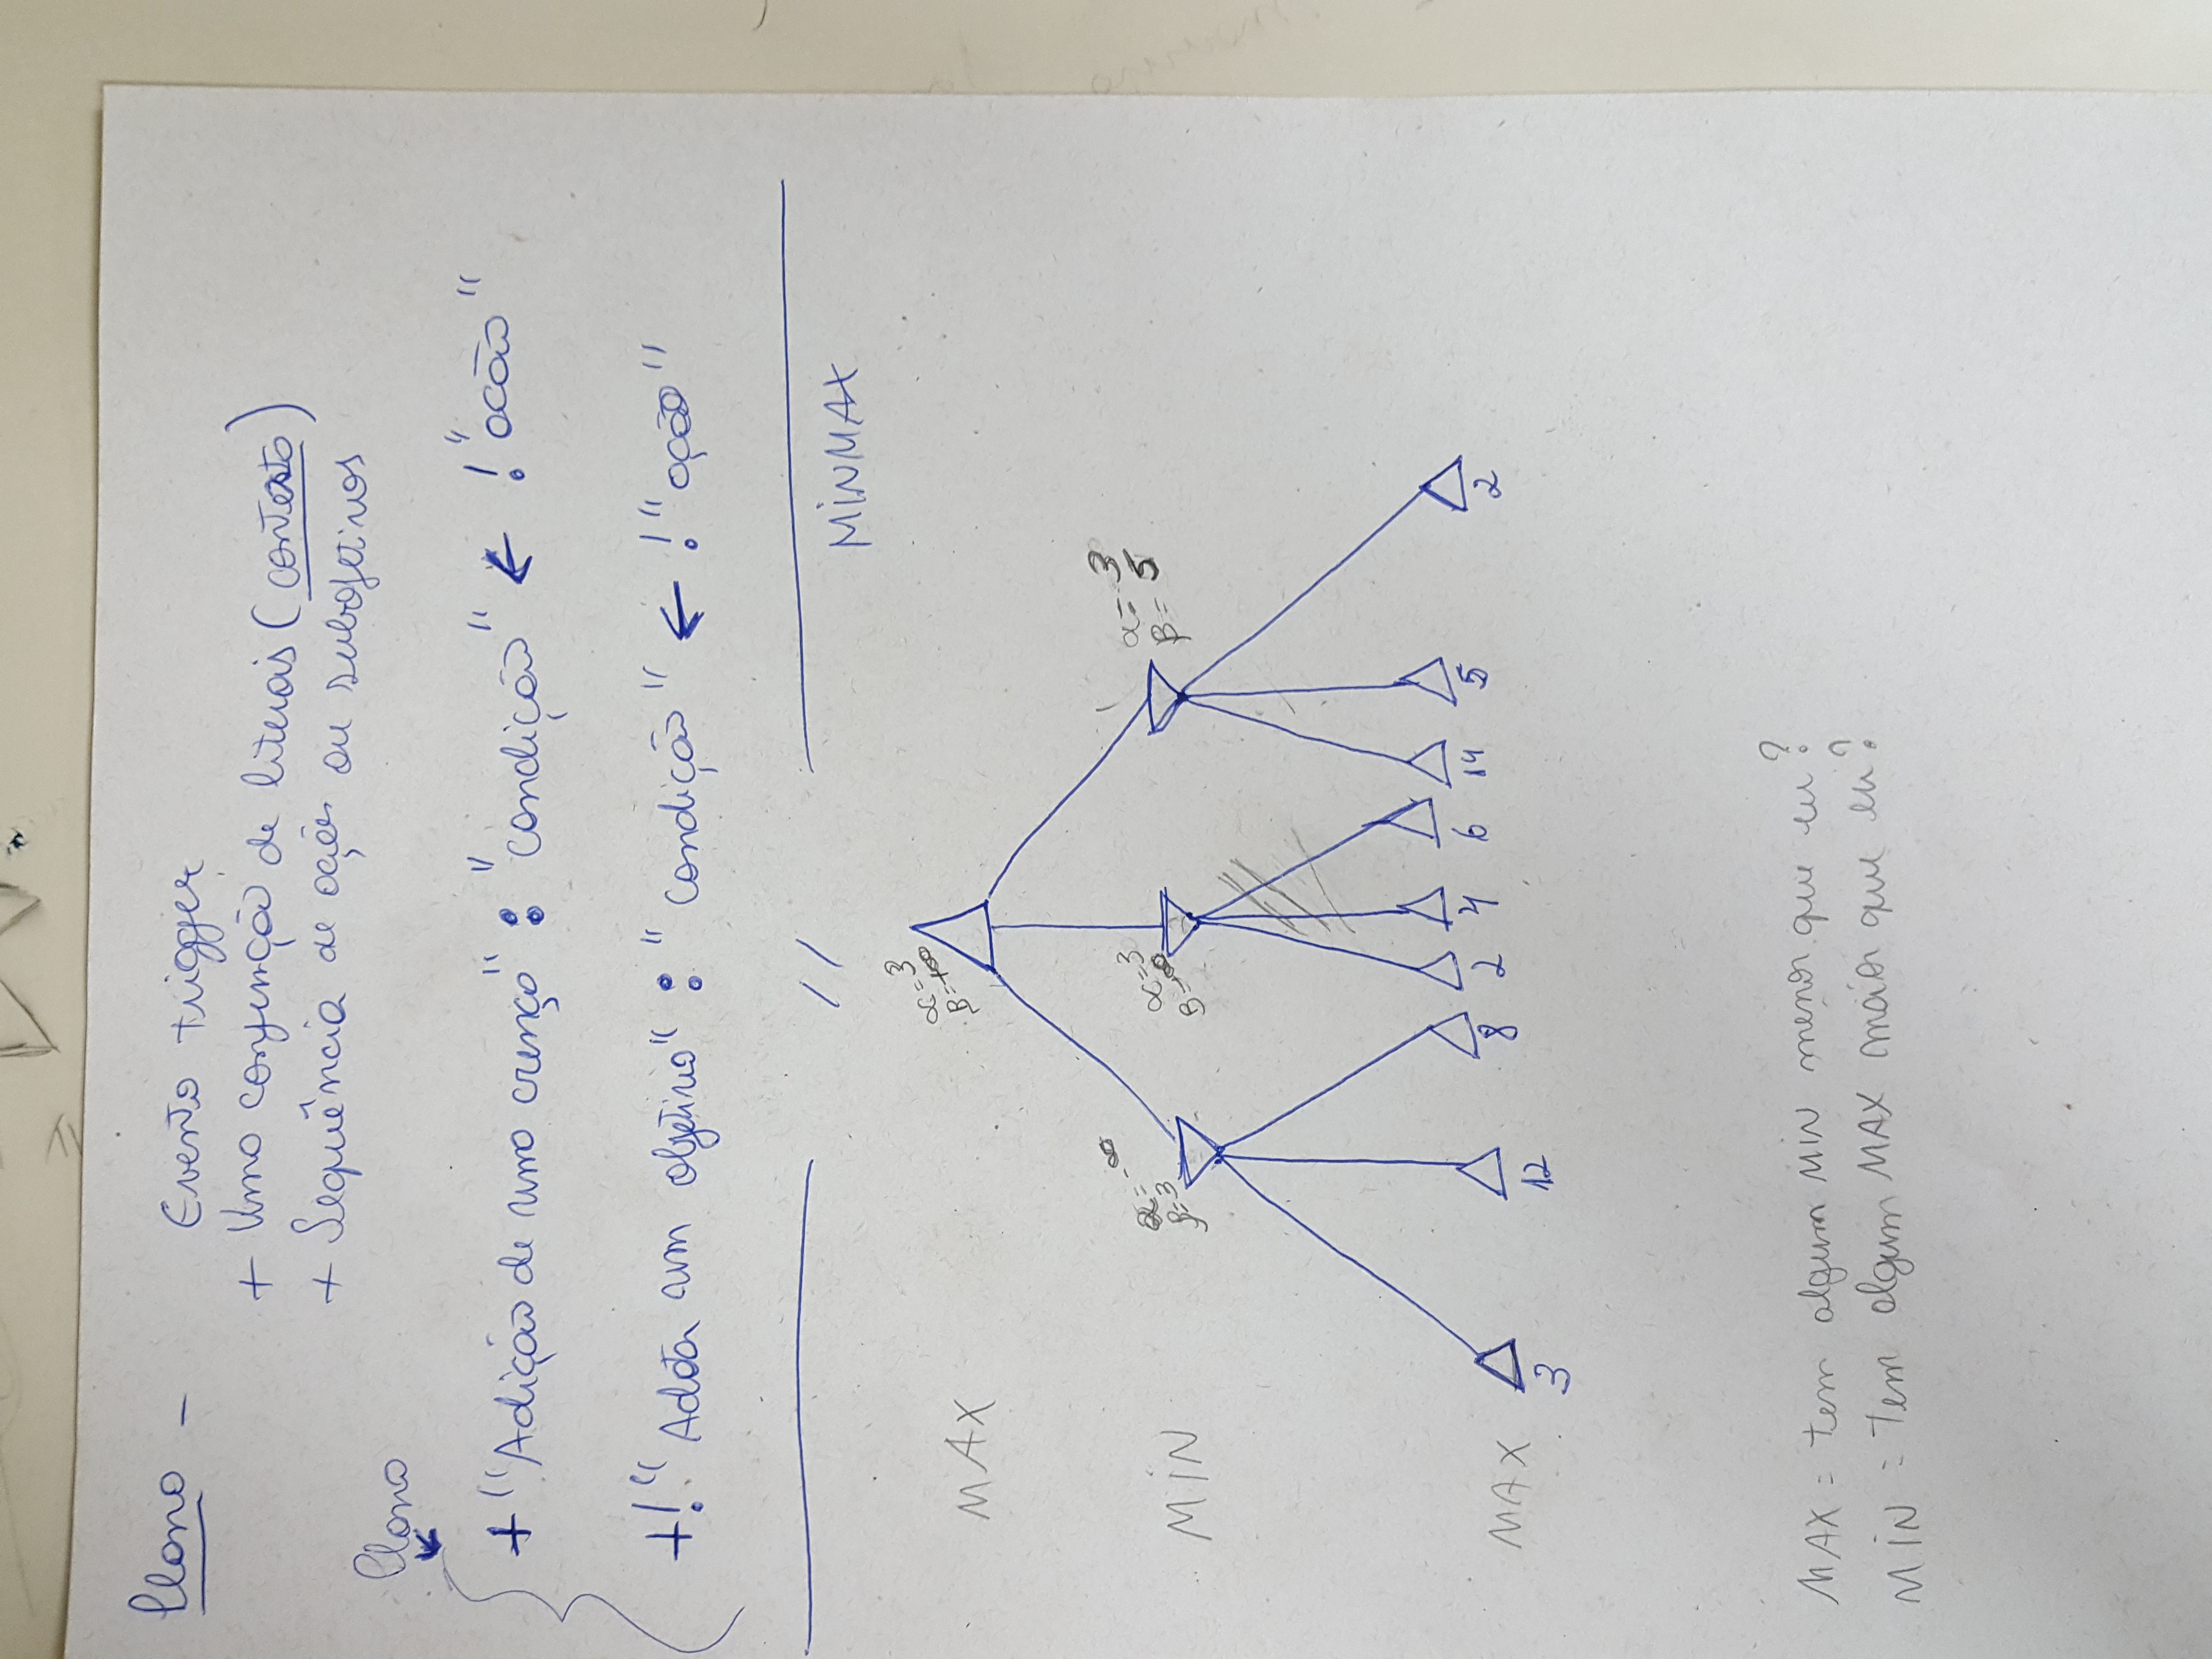 Plano - Evento trigger
+ Uma conjunção de literais (contexto)
+ Sequência de ações ou subojetivos
Plano
+ "Adição de uma crença" : "condição" ← ! "acão"
+! "Adota um objetivo" : "condição" ← ! "ação"
//
MINMAX
α=3
β=+∞
MAX
α=-∞
β=3
α=3
α=3
β=5
MIN
3 12 8 2 4 6 14 5 2
MAX
MAX = tem algum MIN menor que eu?
MIN = Tem algum MAX maior que eu?